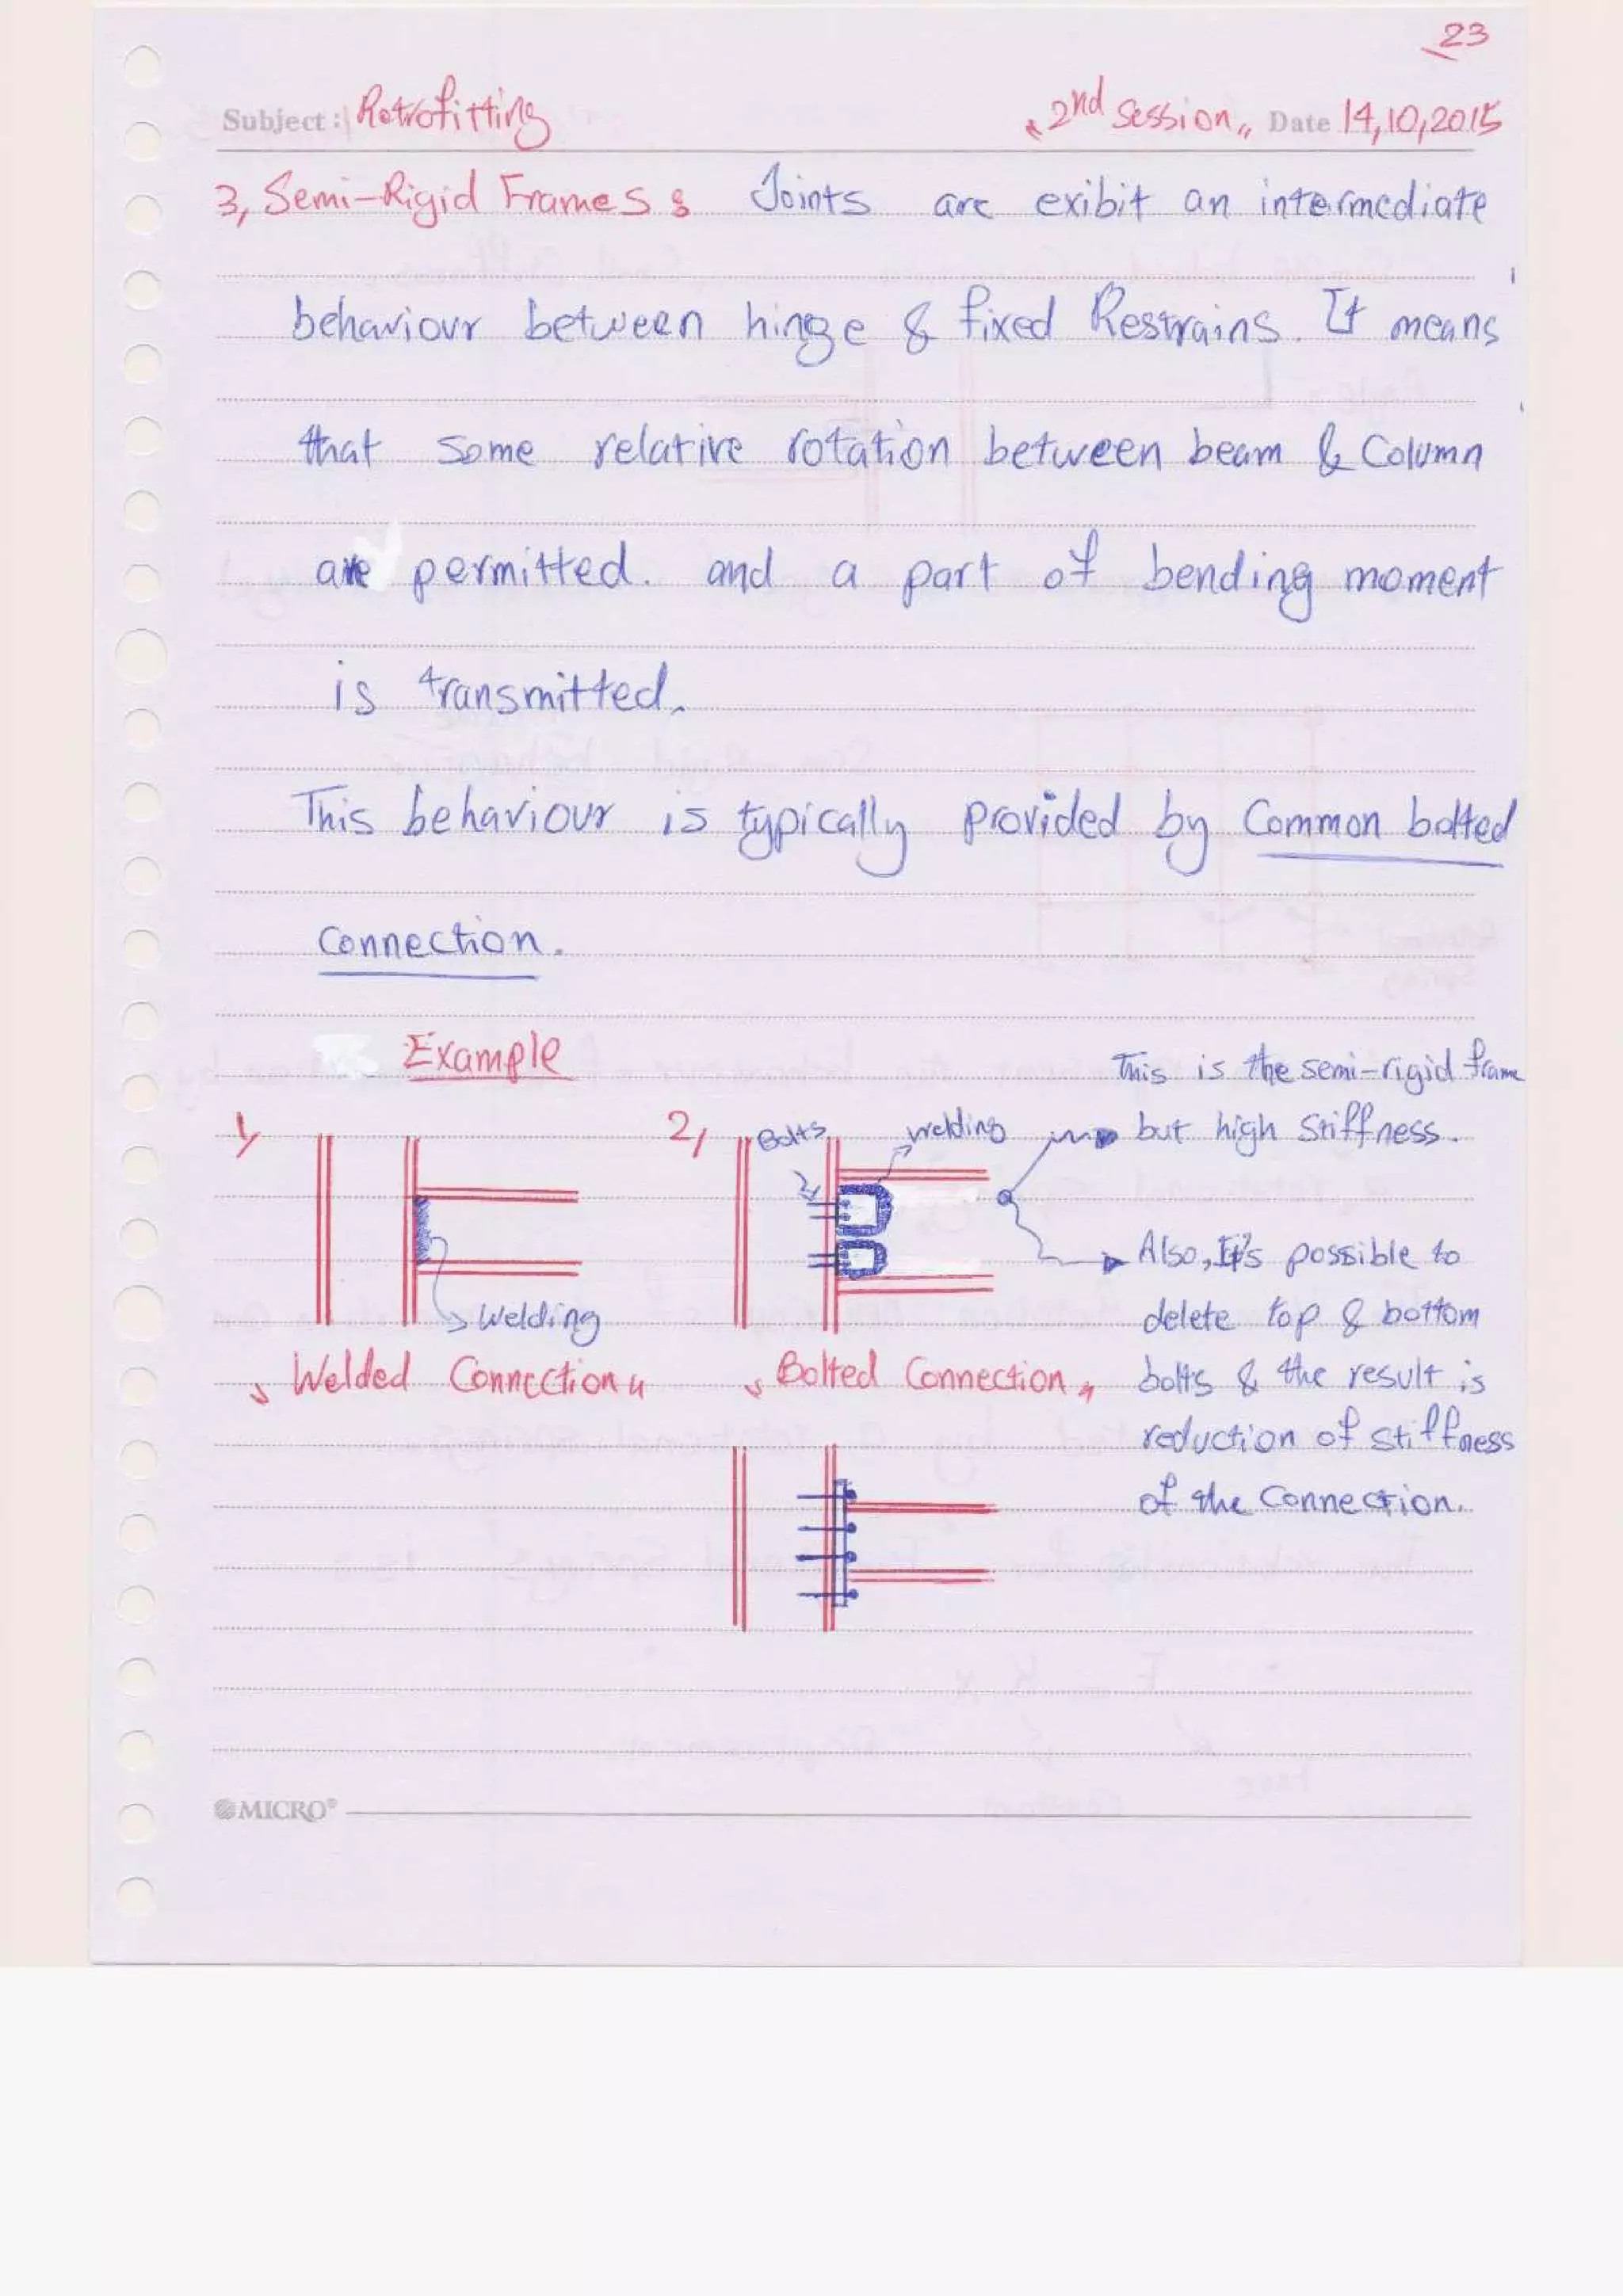 23
Subject: Retrofitting "2nd Session" Date 14,10,2015
3, Semi-Rigid Frames: Joints are exibit an intermediate
behaviour between hinge & fixed Restrains. It means
that some relative rotation between beam & Column
are permitted. and a part of bending moment
is transmitted.
This behaviour is typically provided by Common bolted
Connection.
Example
This is the semi-rigid frame
but high Stiffness.
1,
2,
Bolts
welding
Welding
Also, It's possible to
delete top & bottom
bolts & the result is
reduction of stiffness
of the Connection.
"Welded Connection"
"Bolted Connection"
MICRO®